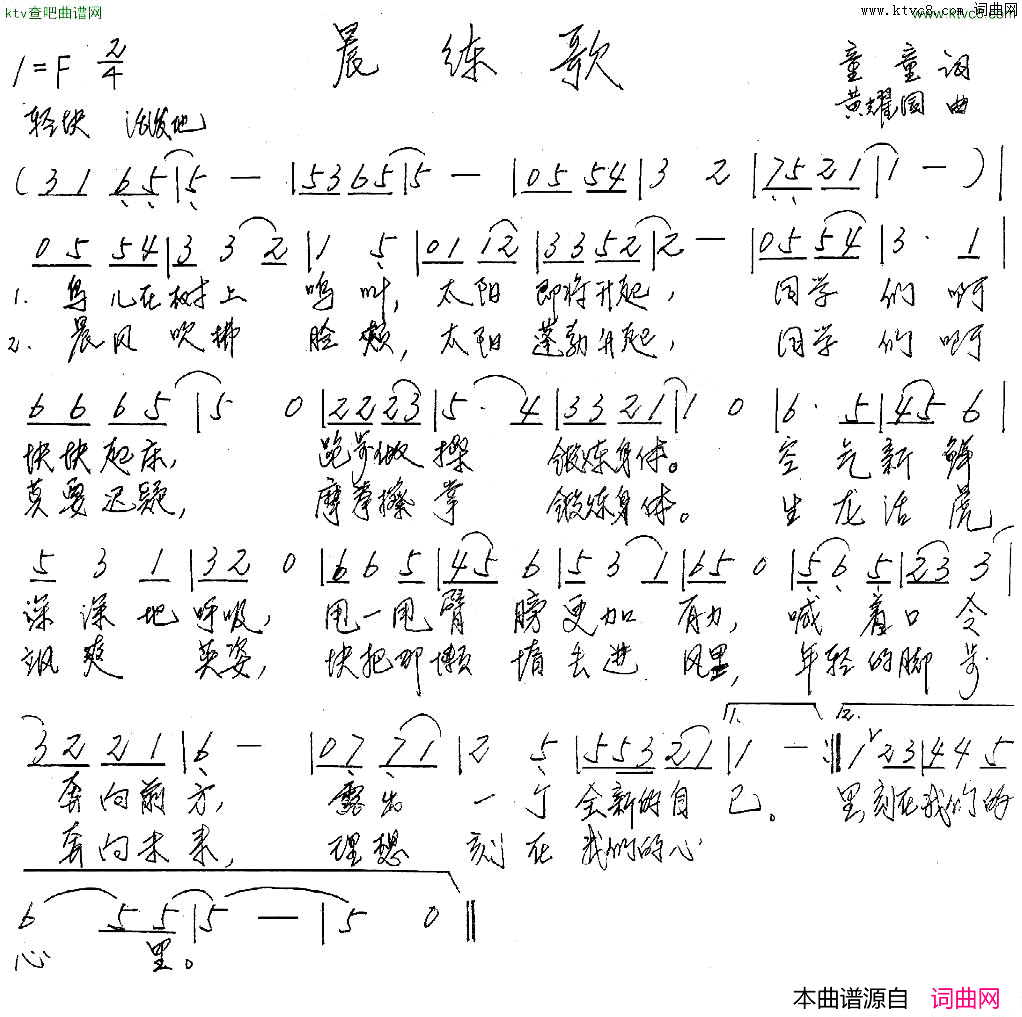 ktv查吧曲谱网 www.ktvc8.com 词曲网
www.ktvc8.com
晨练歌
1=F 2/4
童童 词
黄耀国 曲
轻快 活泼地
( 3 1 6 5 | 5 — | 5 3 6 5 | 5 — | 0 5 5 4 | 3 2 | 7 5 2 1 | 1 — ) |
0 5 5 4 | 3 3 2 | 1 5 | 0 1 1 2 | 3 3 5 2 | 2 — | 0 5 5 4 | 3 · 1 |
1. 鸟儿在树上 鸣叫, 太阳 即将升起, 同学们啊
2. 晨风吹拂 脸颊, 太阳 蓬勃升起, 同学们啊
6 6 6 5 | 5 0 | 2 2 2 3 | 5 · 4 | 3 3 2 1 | 1 0 | 6 · 5 | 4 5 6 |
快快起床, 跑步做操 锻炼身体。 空气新鲜
莫要迟疑, 摩拳擦掌 锻炼身体。 生龙活虎
5 3 1 | 3 2 0 | 6 6 5 | 4 5 6 | 5 3 1 | 6 5 0 | 5 6 5 | 2 3 3 |
深深地呼吸, 甩一甩臂膀更加有力, 喊着口令
飒爽 英姿, 快把那懒惰丢进 风里, 年轻的脚步
3 2 2 1 | 6 — | 0 7 7 1 | 2 5 | 5 5 3 2 1 | 1. 1 — :‖ 2. 1 2 3 | 4 4 5
奔向前方, 露出 一个全新的自己。 里刻在我们的
奔向未来, 理想 刻在我们的心
6 5 5 | 5 — | 5 0 ‖
心 里。
本曲谱源自 词曲网